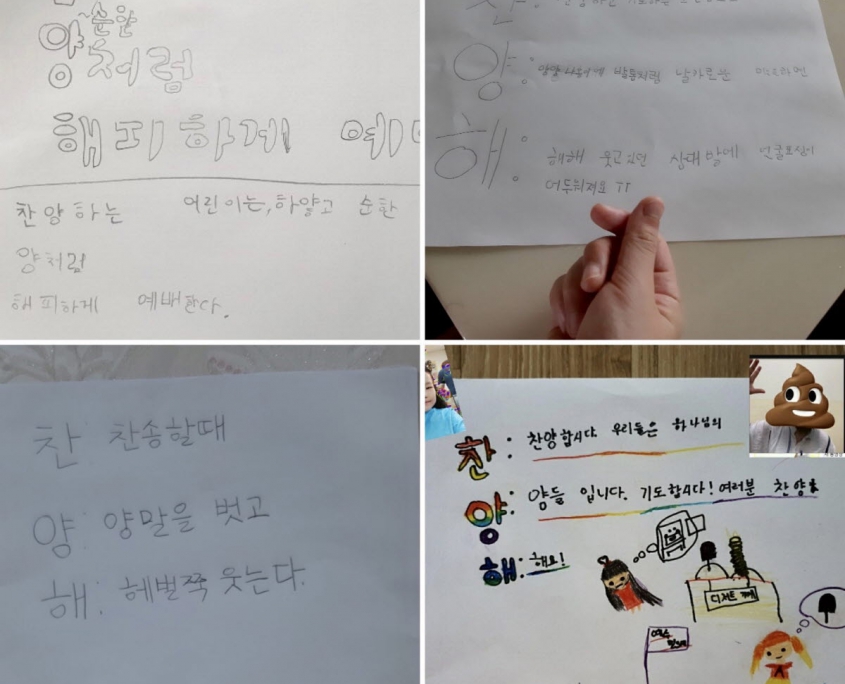 순한
양처럼
해피하게 예
찬양하는 어린이는, 하얗고 순한
양처럼
해피하게 예배한다.
양: 발톱처럼 날카로운
해: 해해 웃고있던 상대방에 얼굴표정이
어두워져요 ㅠㅠ
찬: 찬송할때
양: 양말을 벗고
해: 헤벌쭉 웃는다.
찬: 찬양합시다. 우리들은 하나님의
양: 양들 입니다. 기도합시다! 여러분 찬양을
해: 해요!
디저트 가게
예수